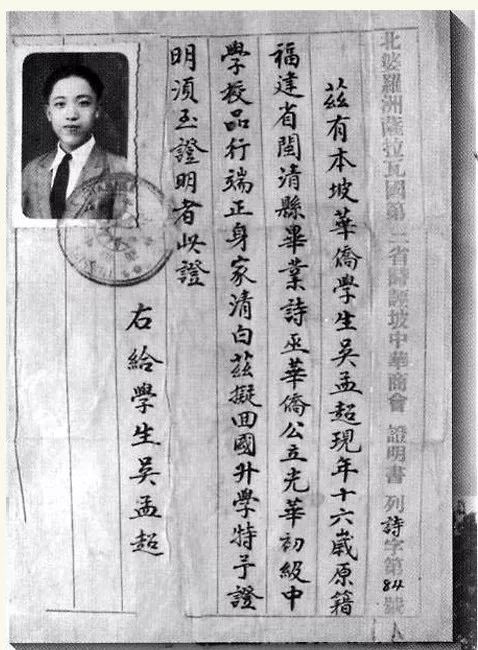 北婆羅洲薩拉瓦國第省詩坡中華商會 證明書 列詩字第84號
茲有本坡華僑學生吳孟超現年十六歲原籍
福建省閩清縣畢業詩巫華僑公立光華初級中
學校品行端正身家清白茲擬回國升學特予證
明須至證明者此證
右給學生吳孟超